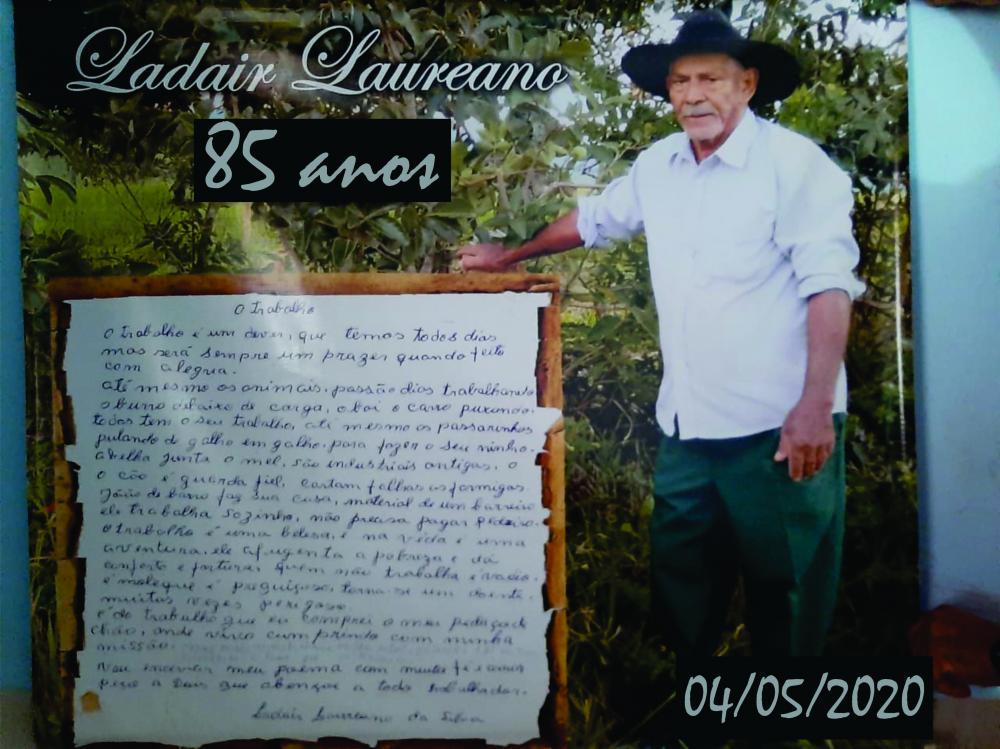 Ladair Laureano
85 anos
O trabalho
O trabalho é um dever, que temos todos dias
mas será sempre um prazer quando feito
com alegria.
até mesmo os animais, passão dias trabalhando
o burro debaixo de carga, o boi o carro puxando.
todos tem o seu trabalho, até mesmo os passarinhos
pulando de galho em galho, para fazer o seu ninho.
abelha junta o mel, são industriais antigas, o
o cão é guarda fiel, cortam folhas as formigas.
João de barro faz sua casa, material de um barreiro
ele trabalha sozinho, não precisa pagar pedreiro.
o trabalho é uma belesa, é na vida é uma
aventura, ele afugenta a pobreza e dá
conforto e fartura, quem não trabalha é vadio.
é moleque é preguiçoso, torna-se um doente.
muitas vezes perigoso.
é do trabalho que eu comprei o meu pedaço de
chão, onde vivo cumprindo com minha
missão.
Vou encerrar meu poema com muita fé e
peço a Deus que abençoe a todo trabalhador.
Ladair Laureano da Silva
04/05/2020